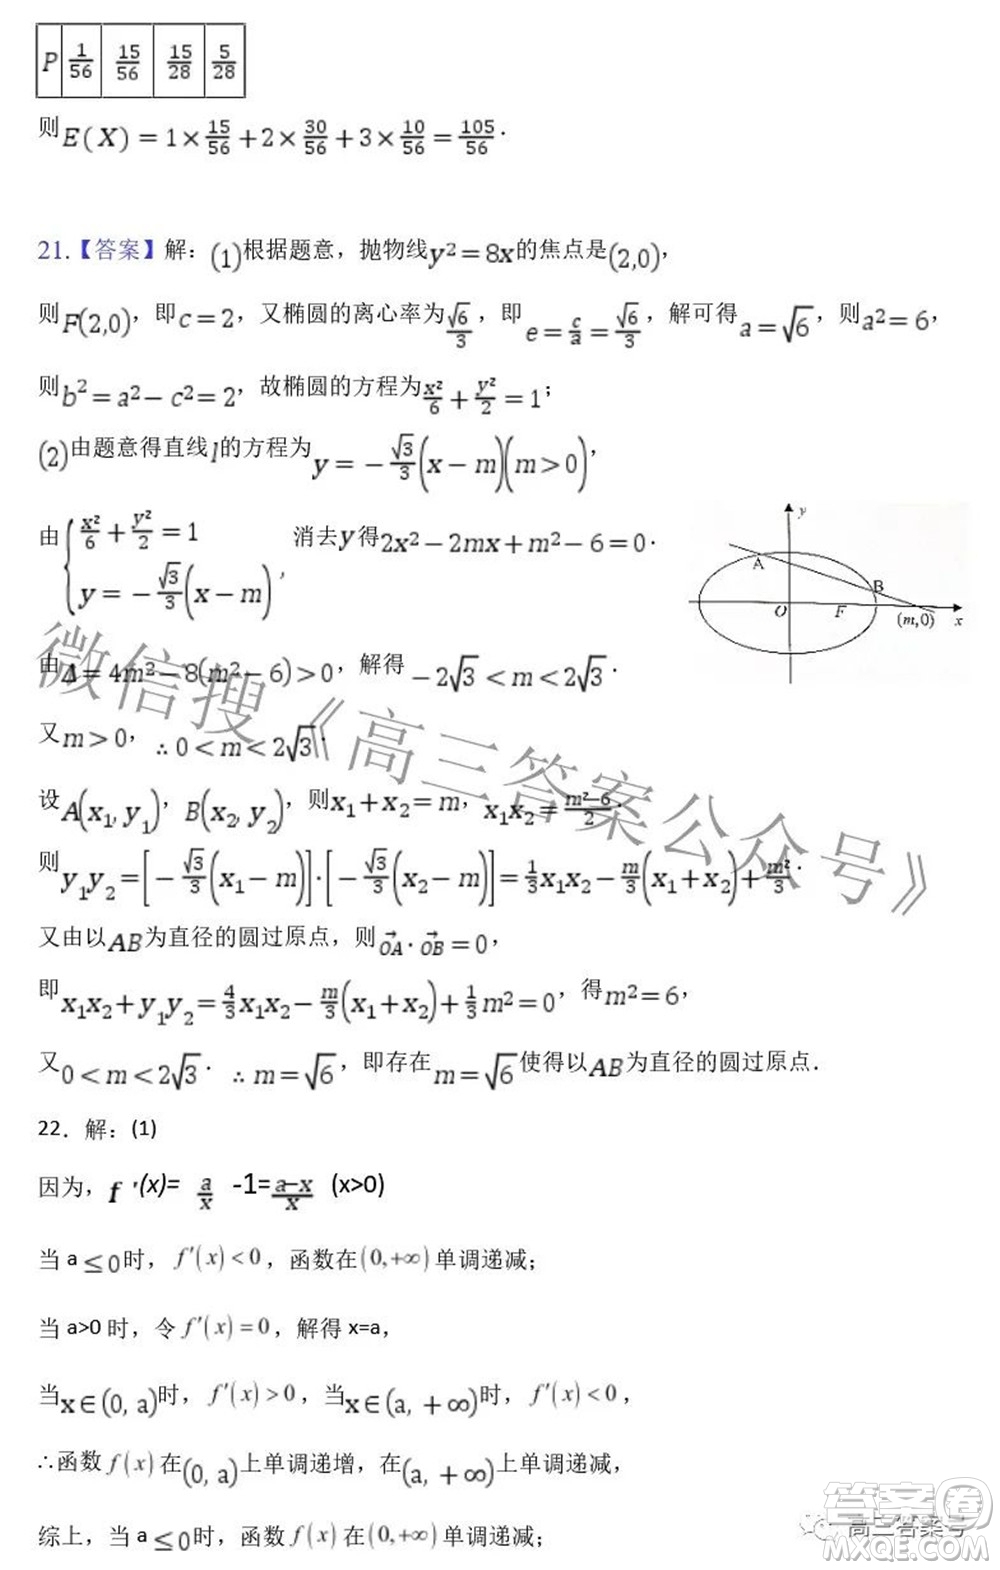 P 1/56 15/56 15/28 5/28
则E(X)=1×15/56+2×30/56+3×10/56=105/56.
21.【答案】解：(1)根据题意，抛物线y²=8x的焦点是(2,0)，
则F(2,0)，即c=2，又椭圆的离心率为√6/3，即e=c/a=√6/3，解可得a=√6，则a²=6，
则b²=a²-c²=2，故椭圆的方程为x²/6+y²/2=1；
(2)由题意得直线l的方程为y=-√3/3(x-m)(m>0)，
由{x²/6+y²/2=1 y=-√3/3(x-m)，消去y得2x²-2mx+m²-6=0.
y
A
B
O
F
(m,0)
x
由Δ=4m²-8(m²-6)>0，解得-2√3<m<2√3.
又m>0，∴0<m<2√3.
设A(x₁,y₁)，B(x₂,y₂)，则x₁+x₂=m，x₁x₂=(m²-6)/2.
则y₁y₂=[-√3/3(x₁-m)]·[-√3/3(x₂-m)]=1/3x₁x₂-m/3(x₁+x₂)+m²/3.
又由以AB为直径的圆过原点，则OA·OB=0，
即x₁x₂+y₁y₂=4/3x₁x₂-m/3(x₁+x₂)+1/3m²=0，得m²=6，
又0<m<2√3. ∴m=√6，即存在m=√6使得以AB为直径的圆过原点.
22．解：(1)
因为，f'(x)= a/x -1=(a-x)/x (x>0)
当a≤0时，f'(x)<0，函数在(0,+∞)单调递减；
当a>0时，令f'(x)=0，解得x=a，
当x∈(0,a)时，f'(x)>0，当x∈(a,+∞)时，f'(x)<0，
∴函数f(x)在(0,a)上单调递增，在(a,+∞)上单调递减，
综上，当a≤0时，函数f(x)在(0,+∞)单调递减；
微信搜《高三答案公众号》
高三答案号
答案卷
MXQE.COM